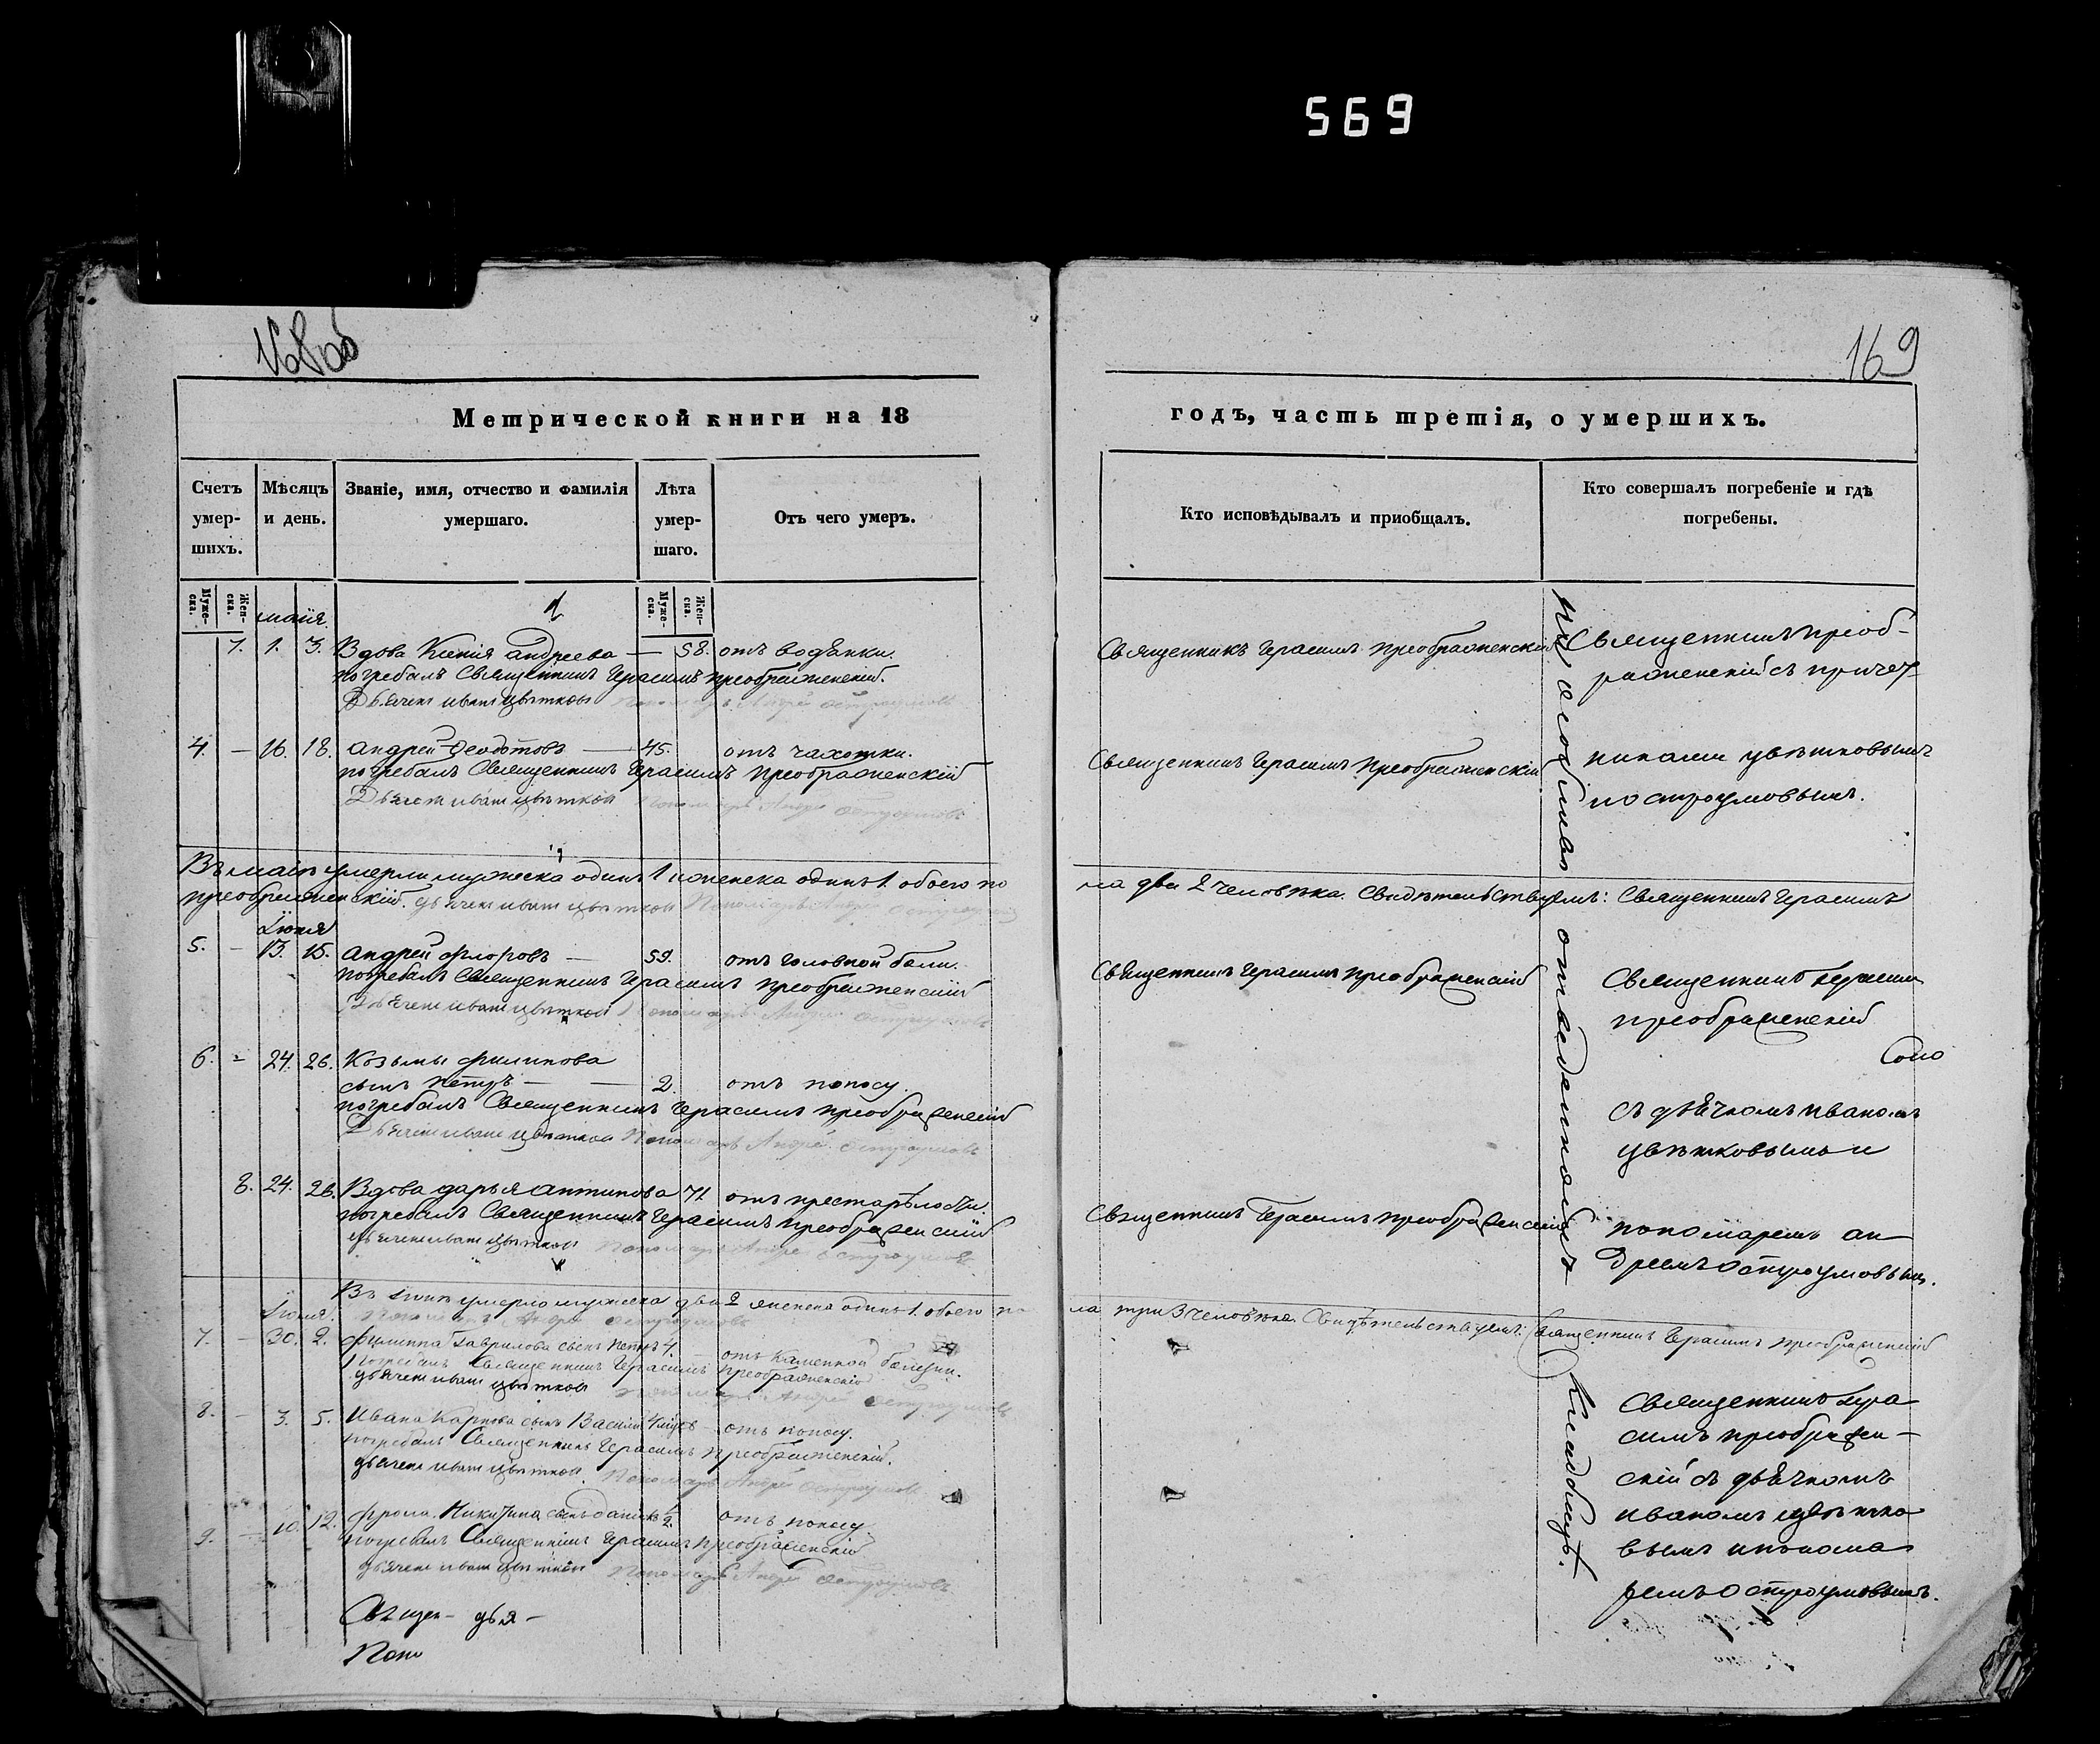 569
168об
169
Метрической книги на 18
годъ, часть третія, о умершихъ.
Счетъ умер-шихъ.
Мѣсяцъ и день.
Званіе, имя, отчество и фамилія умершаго.
Лѣта умер-шаго.
Отъ чего умеръ.
Кто исповѣдывалъ и приобщалъ.
Кто совершалъ погребеніе и гдѣ погребены.
Муже-ска.
Жен-ска.
Муже-ска.
Жен-ска.
маія.
7. 1. 3. Вдова Ксенія Андреева — 58. отъ водянки.
погребалъ Священникъ Герасимъ Преображенскій.
Дьячекъ Иванъ Цвѣтковъ Пономарь Андрей Остроумовъ
4. — 16. 18. Андрей Ѳеодотовъ — 45. отъ чахотки.
погребалъ Священникъ Герасимъ Преображенскій
Дьячекъ Иванъ Цвѣтковъ Пономарь Андрей Остроумовъ
Въ маіѣ умерли мужеска одинъ 1 женска одинъ 1. обоего по
преображенскій. Дьячекъ Иванъ Цвѣтковъ Пономарь Андрей Остроумовъ
Іюня
5. — 13. 15. Андрей Флоровъ — 59. отъ головной боли.
погребалъ Священникъ Герасимъ Преображенскій
Дьячекъ Иванъ Цвѣтковъ Пономарь Андрей Остроумовъ
6. — 24. 26. Козьмы Филипова
сынъ Петръ — — 2. отъ поносу.
погребалъ Священникъ Герасимъ Преображенскій
Дьячекъ Иванъ Цвѣтковъ Пономарь Андрей Остроумовъ
8. 24. 26. Вдова Дарья Антипова 71. отъ престарѣлости.
погребалъ Священникъ Герасимъ Преображенскій
Дьячекъ Иванъ Цвѣтковъ Пономарь Андрей Остроумовъ
Въ Іюнѣ умерло мужеска два 2 женска одинъ 1. обоего по
Іюля. Пономарь Андрей Остроумовъ
7. — 30. 2. Филиппа Гаврилова сынъ Петръ 4. — отъ каменной болезни.
погребалъ Священникъ Герасимъ Преображенскій
Дьячекъ Иванъ Цвѣтковъ Пономарь Андрей Остроумовъ
8. — 3. 5. Ивана Карпова сынъ Василій — отъ поносу.
погребалъ Священникъ Герасимъ Преображенскій.
Дьячекъ Иванъ Цвѣтковъ Пономарь Андрей Остроумовъ
9. — 10. 12. Фрола Никитина сынъ отъ поносу.
погребалъ Священникъ Герасимъ Преображенскій
Дьячекъ Иванъ Цвѣтковъ Пономарь Андрей Остроумовъ
Священ- дья-
Поно
Священникъ Герасимъ Преображенскій
Священникъ Преоб-
раженскій съ причет-
Священникъ Герасимъ Преображенскій
никами Цвѣтковымъ
и Остроумовымъ.
ла два 2 человѣка. Свидѣтельствуемъ: Священникъ Герасимъ
Священникъ Герасимъ Преображенскій
Священникъ Герасимъ
преображенскій
Соно
съ дьячкомъ Иваномъ
Цвѣтковымъ и
Священникъ Герасимъ Преображенскій
пономаремъ Ан-
дреемъ Остроумовымъ.
ла три 3 человѣка. Свидѣтельствуемъ: Священникъ Герасимъ Преображенскій
Священникъ Гера
симъ преображен-
скій съ дьячкомъ
Иваномъ Цвѣтко
вымъ и понома
ремъ Остроумовымъ.
на особливо отведенномъ
кладбищѣ.